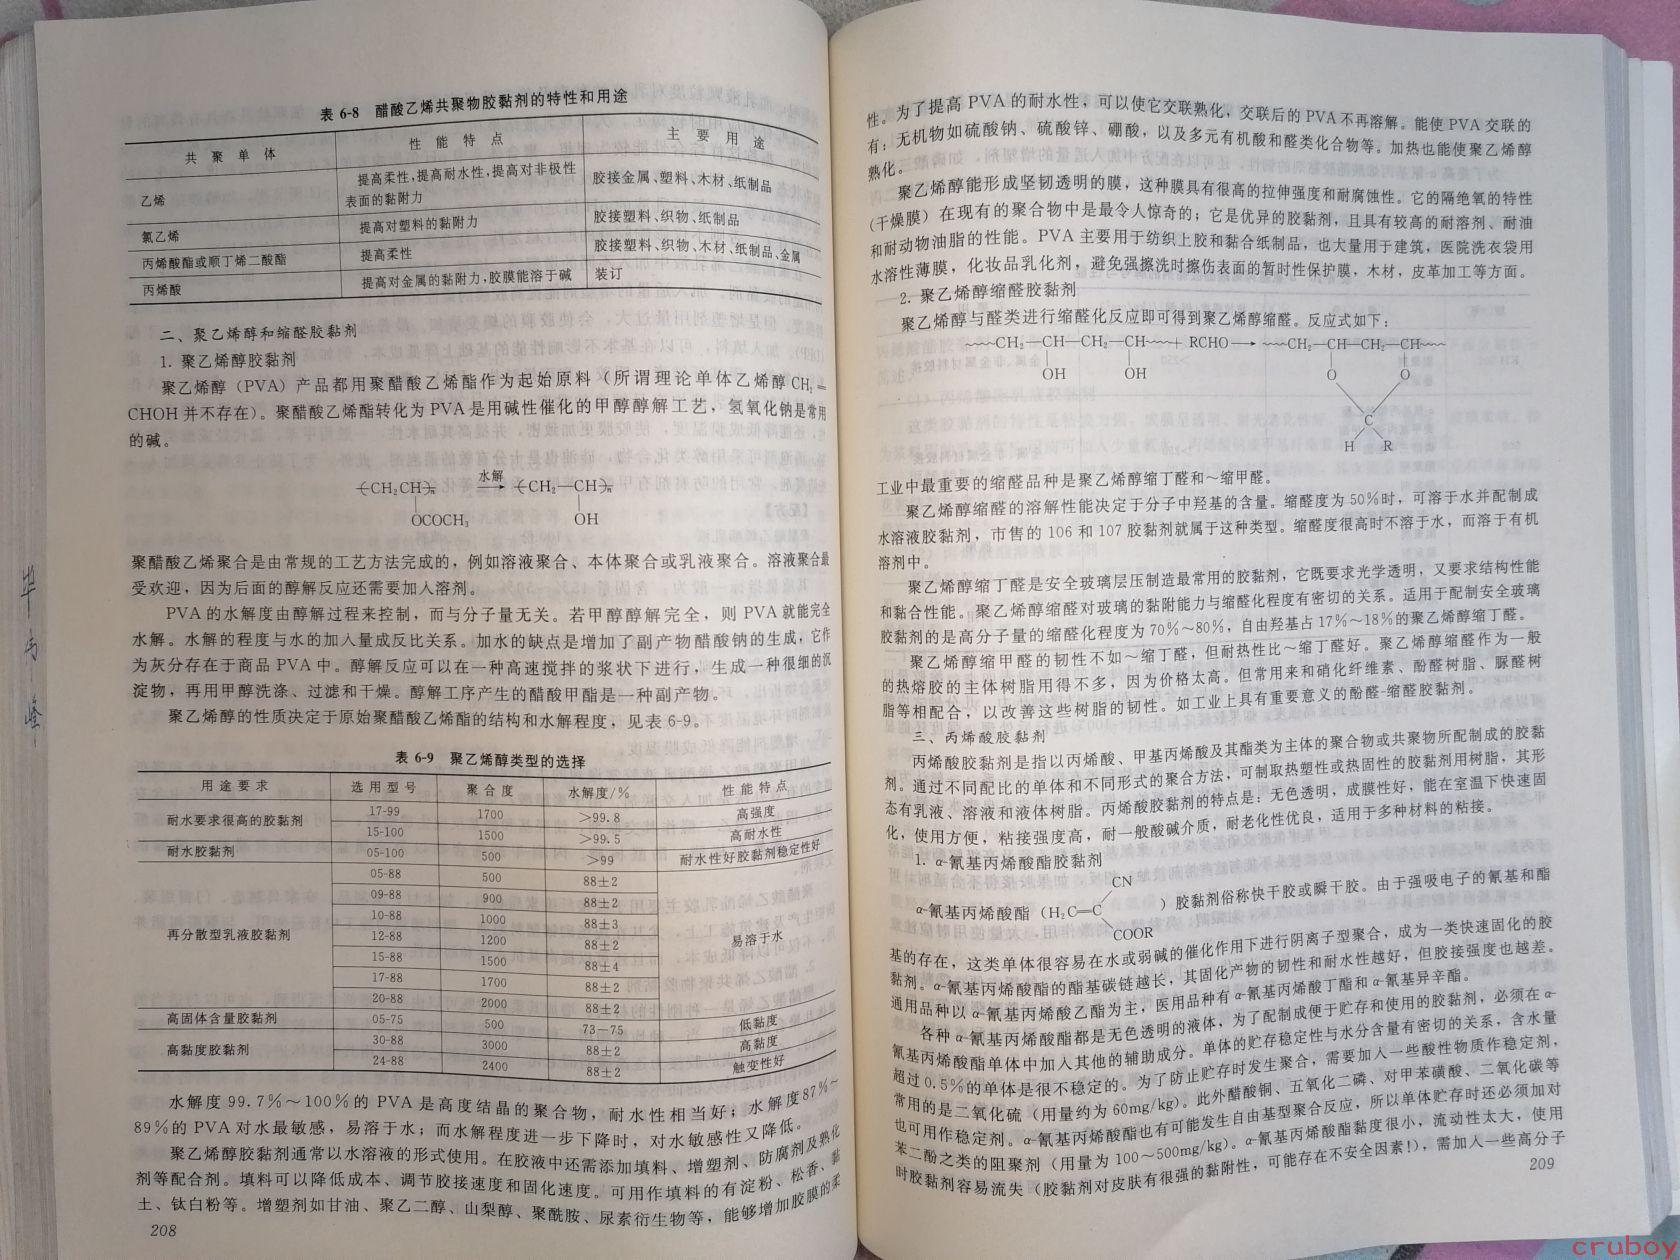 表 6-8 醋酸乙烯共聚物胶黏剂的特性和用途
共聚单体 性能特点 主要用途
乙烯 提高柔性,提高耐水性,提高对非极性表面的黏附力 胶接金属、塑料、木材、纸制品
氯乙烯 提高对塑料的黏附力 胶接塑料、织物、纸制品
丙烯酸酯或顺丁烯二酸酯 提高柔性 胶接塑料、织物、木材、纸制品、金属
丙烯酸 提高对金属的黏附力,胶膜能溶于碱 装订
二、聚乙烯醇和缩醛胶黏剂
1. 聚乙烯醇胶黏剂
聚乙烯醇（PVA）产品都用聚醋酸乙烯酯作为起始原料（所谓理论单体乙烯醇 CH₂＝
CHOH 并不存在）。聚醋酸乙烯酯转化为 PVA 是用碱性催化的甲醇醇解工艺，氢氧化钠是常用
的碱。
水解
⁅CH₂CH⁆ₙ ⟶ ⁅CH₂—CH⁆ₙ
OCOCH₃ OH
聚醋酸乙烯聚合是由常规的工艺方法完成的，例如溶液聚合、本体聚合或乳液聚合。溶液聚合最
受欢迎，因为后面的醇解反应还需要加入溶剂。
PVA 的水解度由醇解过程来控制，而与分子量无关。若甲醇醇解完全，则 PVA 就能完全
水解。水解的程度与水的加入量成反比关系。加水的缺点是增加了副产物醋酸钠的生成，它作
为灰分存在于商品 PVA 中。醇解反应可以在一种高速搅拌的浆状下进行，生成一种很细的沉
淀物，再用甲醇洗涤、过滤和干燥。醇解工序产生的醋酸甲酯是一种副产物。
聚乙烯醇的性质决定于原始聚醋酸乙烯酯的结构和水解程度，见表 6-9。
表 6-9 聚乙烯醇类型的选择
用途要求 选用型号 聚合度 水解度/% 性能特点
耐水要求很高的胶黏剂 17-99 1700 >99.8 高强度
15-100 1500 >99.5 高耐水性
耐水胶黏剂 05-100 500 >99 耐水性好胶黏剂稳定性好
05-88 500 88±2
09-88 900 88±2
10-88 1000 88±3
再分散型乳液胶黏剂 12-88 1200 88±2 易溶于水
15-88 1500 88±4
17-88 1700 88±2
20-88 2000 88±2
高固体含量胶黏剂 05-75 500 73—75 低黏度
高黏度胶黏剂 30-88 3000 88±2 高黏度
24-88 2400 88±2 触变性好
水解度 99.7%～100%的 PVA 是高度结晶的聚合物，耐水性相当好；水解度87%～
89%的 PVA 对水最敏感，易溶于水；而水解程度进一步下降时，对水敏感性又降低。
聚乙烯醇胶黏剂通常以水溶液的形式使用。在胶液中还需添加填料、增塑剂、防腐剂及熟化
剂等配合剂。填料可以降低成本、调节胶接速度和固化速度。可用作填料的有淀粉、松香、黏
土、钛白粉等。增塑剂如甘油、聚乙二醇、山梨醇、聚酰胺、尿素衍生物等，能够增加胶膜的柔
208
性。为了提高 PVA 的耐水性，可以使它交联熟化，交联后的 PVA 不再溶解。能使 PVA 交联的
有：无机物如硫酸钠、硫酸锌、硼酸，以及多元有机酸和醛类化合物等。加热也能使聚乙烯醇
熟化。
聚乙烯醇能形成坚韧透明的膜，这种膜具有很高的拉伸强度和耐腐蚀性。它的隔绝氧的特性
（干燥膜）在现有的聚合物中是最令人惊奇的；它是优异的胶黏剂，且具有较高的耐溶剂、耐油
和耐动物油脂的性能。PVA 主要用于纺织上胶和黏合纸制品，也大量用于建筑，医院洗衣袋用
水溶性薄膜，化妆品乳化剂，避免强擦洗时擦伤表面的暂时性保护膜，木材，皮革加工等方面。
2. 聚乙烯醇缩醛胶黏剂
聚乙烯醇与醛类进行缩醛化反应即可得到聚乙烯醇缩醛。反应式如下：
～～CH₂—CH—CH₂—CH～～＋ RCHO ⟶ ～～CH₂—CH—CH₂—CH～～
OH OH O O
C
H R
工业中最重要的缩醛品种是聚乙烯醇缩丁醛和～缩甲醛。
聚乙烯醇缩醛的溶解性能决定于分子中羟基的含量。缩醛度为 50%时，可溶于水并配制成
水溶液胶黏剂，市售的 106 和 107 胶黏剂就属于这种类型。缩醛度很高时不溶于水，而溶于有机
溶剂中。
聚乙烯醇缩丁醛是安全玻璃层压制造最常用的胶黏剂，它既要求光学透明，又要求结构性能
和黏合性能。聚乙烯醇缩醛对玻璃的黏附能力与缩醛化程度有密切的关系。适用于配制安全玻璃
胶黏剂的是高分子量的缩醛化程度为 70%～80%，自由羟基占 17%～18%的聚乙烯醇缩丁醛。
聚乙烯醇缩甲醛的韧性不如～缩丁醛，但耐热性比～缩丁醛好。聚乙烯醇缩醛作为一般
的热熔胶的主体树脂用得不多，因为价格太高。但常用来和硝化纤维素、酚醛树脂、脲醛树
脂等相配合，以改善这些树脂的韧性。如工业上具有重要意义的酚醛-缩醛胶黏剂。
三、丙烯酸胶黏剂
丙烯酸胶黏剂是指以丙烯酸、甲基丙烯酸及其酯类为主体的聚合物或共聚物所配制成的胶黏
剂。通过不同配比的单体和不同形式的聚合方法，可制取热塑性或热固性的胶黏剂用树脂，其形
态有乳液、溶液和液体树脂。丙烯酸胶黏剂的特点是：无色透明，成膜性好，能在室温下快速固
化，使用方便，粘接强度高，耐一般酸碱介质，耐老化性优良，适用于多种材料的粘接。
1. α-氰基丙烯酸酯胶黏剂
CN
α-氰基丙烯酸酯（H₂C═C ）胶黏剂俗称快干胶或瞬干胶。由于强吸电子的氰基和酯
COOR
基的存在，这类单体很容易在水或弱碱的催化作用下进行阴离子型聚合，成为一类快速固化的胶
黏剂。α-氰基丙烯酸酯的酯基碳链越长，其固化产物的韧性和耐水性越好，但胶接强度也越差。
通用品种以 α-氰基丙烯酸乙酯为主，医用品种有 α-氰基丙烯酸丁酯和 α-氰基异辛酯。
各种 α-氰基丙烯酸酯都是无色透明的液体，为了配制成便于贮存和使用的胶黏剂，必须在 α-
氰基丙烯酸酯单体中加入其他的辅助成分。单体的贮存稳定性与水分含量有密切的关系，含水量
超过 0.5%的单体是很不稳定的。为了防止贮存时发生聚合，需要加入一些酸性物质作稳定剂，
常用的是二氧化硫（用量约为 60mg/kg）。此外醋酸铜、五氧化二磷、对甲苯磺酸、二氧化碳等
也可用作稳定剂。α-氰基丙烯酸酯也有可能发生自由基型聚合反应，所以单体贮存时还必须加对
苯二酚之类的阻聚剂（用量为 100～500mg/kg）。α-氰基丙烯酸酯黏度很小，流动性太大，使用
时胶黏剂容易流失（胶黏剂对皮肤有很强的黏附性，可能存在不安全因素!），需加入一些高分子
209
cruboy